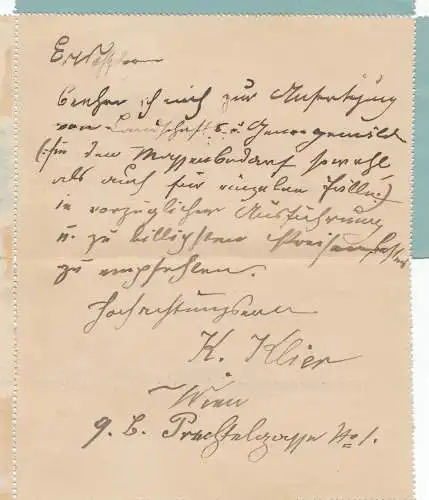 beehre ich mich zur Anfertigung
von Landschafts- u. Genregemälde
(für den Massenbedarf sowohl
als auch für einzelne Fälle)
in vorzüglicher Ausführung
u. zu billigsten Preisen
zu empfehlen.
Hochachtungsvoll
K. Klier
Wien
9. B. Prechtelgasse No 1.